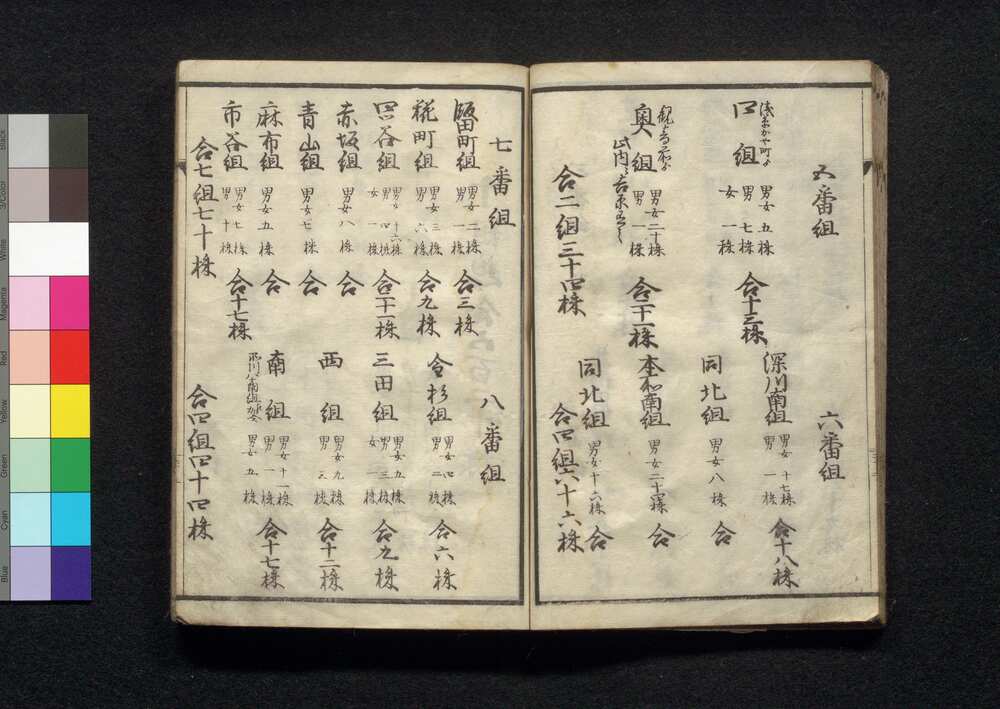 五番組
口組
男女 五株
男 七株
女 一株
合十三株
奥組
男女二十株
男 一株
合二十一株
合二組三十四株
六番組
深川南組
男女 十七株
男 一株
合十八株
同北組
男女 八株
合
本所南組
男女二十四株
合
同北組
男女十六株
合
合四組六十六株
七番組
飯田町組
男女 二株
男 一株
合三株
糀町組
男女 三株
男 六株
合九株
四谷組
男女十六株
男 四株
女 一株
合二十一株
赤坂組
男女 八株
合
青山組
男女 七株
合
麻布組
男女 五株
合
市谷組
男女 七株
男 十株
合十七株
合七組七十株
八番組
今杉組
男女 四株
男 二株
合六株
三田組
男女 五株
男 三株
女 一株
合九株
西組
男女 九株
男 三株
合十二株
南組
男女十一株
男 一株
男女 五株
合十七株
合四組四十四株
Black
3/Color
White
Magenta
Red
Yellow
Green
Cyan
Blue